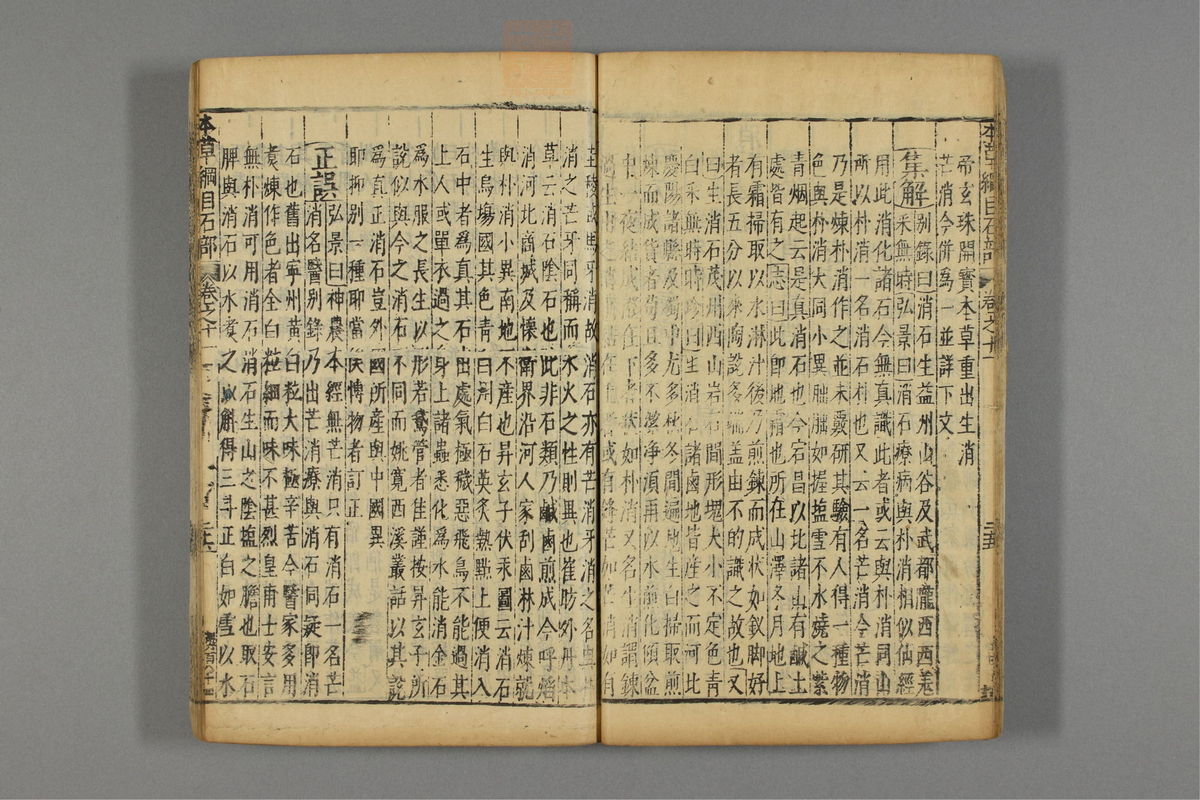 本草綱目石部 卷之十一
帝玄珠開寶本草重出生消
芒消今併爲一並詳下文
集解 别錄曰消石生益州山谷及武都隴西西羌
采無時弘景曰消石療病與朴消相似仙經
用此消化諸石今無真識此者或云與朴消同山
所以朴消一名消石朴也又云一名芒消今芒消
乃是煉朴消作之並未覈研其驗有人得一種物
色與朴消大同小異朏朏如握鹽雪不水燒之紫
青烟起云是真消石也今宕昌以北諸山有鹹土
處皆有之志曰此卽地霜也所在山澤冬月地上
有霜掃取以水淋汁後乃煎鍊而成狀如釵脚好
者長五分以來陶說多端盖由不的識之故也又
曰生消石茂州西山岩石間形塊大小不定色青
白采無時時珍曰生消石諸鹵地皆産之而河北
慶陽諸縣及蜀中尤多秋冬間遍地生白掃取煎
煉而成貨者苟且多不潔淨須再以水煎化傾盆
中一夜結成澄在下者狀如朴消又名生消謂鍊
過生出之消也
或有鋒芒如
消之芒牙同稱而水火之性則異也崔昉外丹本
草云消石陰石也此非石類乃鹹鹵煎成今呼焰
消河北商城及懷衛界沿河人家刮鹵淋汁煉就
與朴消小異南地不産也昇玄子伏汞圖云消石
生烏塲國其色青白用白石英炙熱點上便消入
石中者爲真其石出處氣極穢惡飛鳥不能過其
上人或單衣過之身上諸蟲悉化爲水能消金石
爲水服之長生以形若鵞管者佳謹按昇玄子所
說似與今之消石不同而姚寬西溪叢話以其說
爲真正消石豈外國所産與中國異
卽抑别一種耶當俟博物者訂正
正誤 弘景曰神農本經無芒消只有消石一名芒
消名醫别錄乃出芒消療與消石同疑卽消
石也舊出寧州黃白粒大味極辛苦今醫家多用
煑煉作色者全白粒細而味不甚烈皇甫士安言
無朴消可用消石消石生山之陰鹽之膽也取石
脾與消石以水煑之一斛得三斗正白如雪以水
本草綱目石部 卷之十一